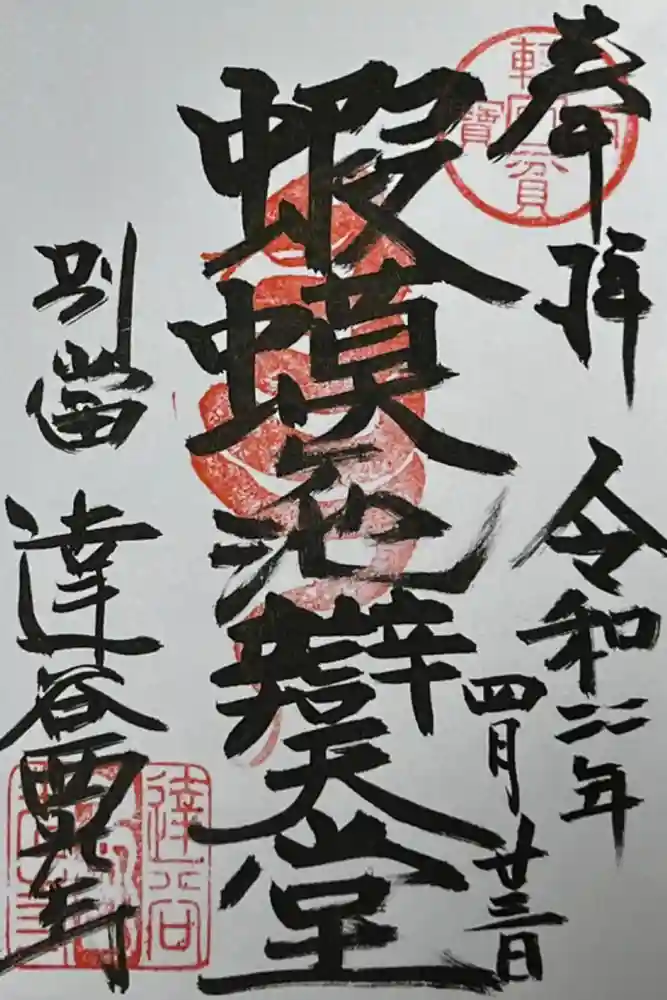 奉拝
令和二年
四月廿三日
蝦蟆ヶ池辯天堂
別當
達谷西光寺
達谷